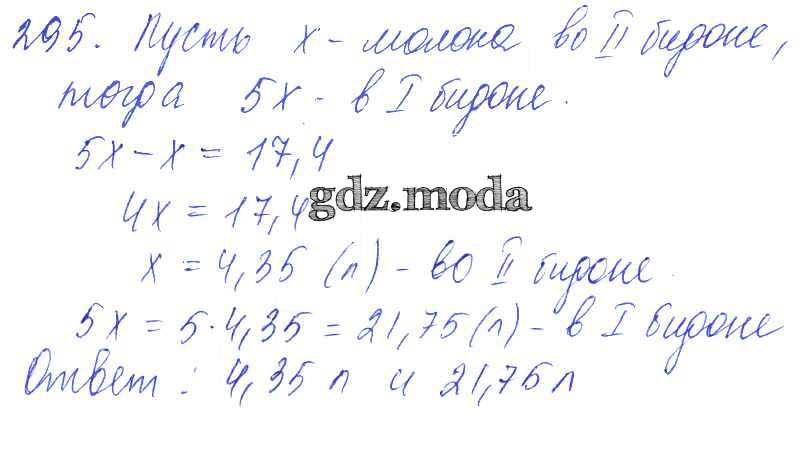 295. Пусть x - молока во II бидоне,
тогда 5x - в I бидоне.
5x - x = 17,4
4x = 17,4
gdz.moda
x = 4,35 (л) - во II бидоне.
5x = 5·4,35 = 21,75 (л) - в I бидоне
Ответ: 4,35 л и 21,75 л